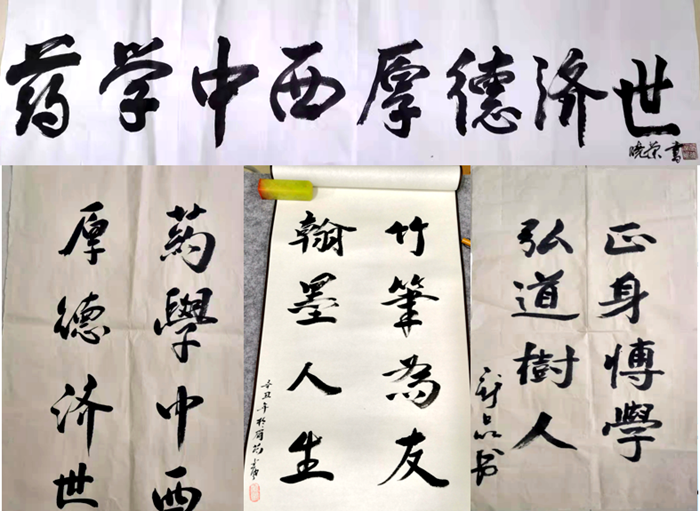 药学中西厚德济世
晓荣書
葯學中西
厚德济世
竹筆為友
翰墨人生
辛丑年於
正身博學
弘道樹人